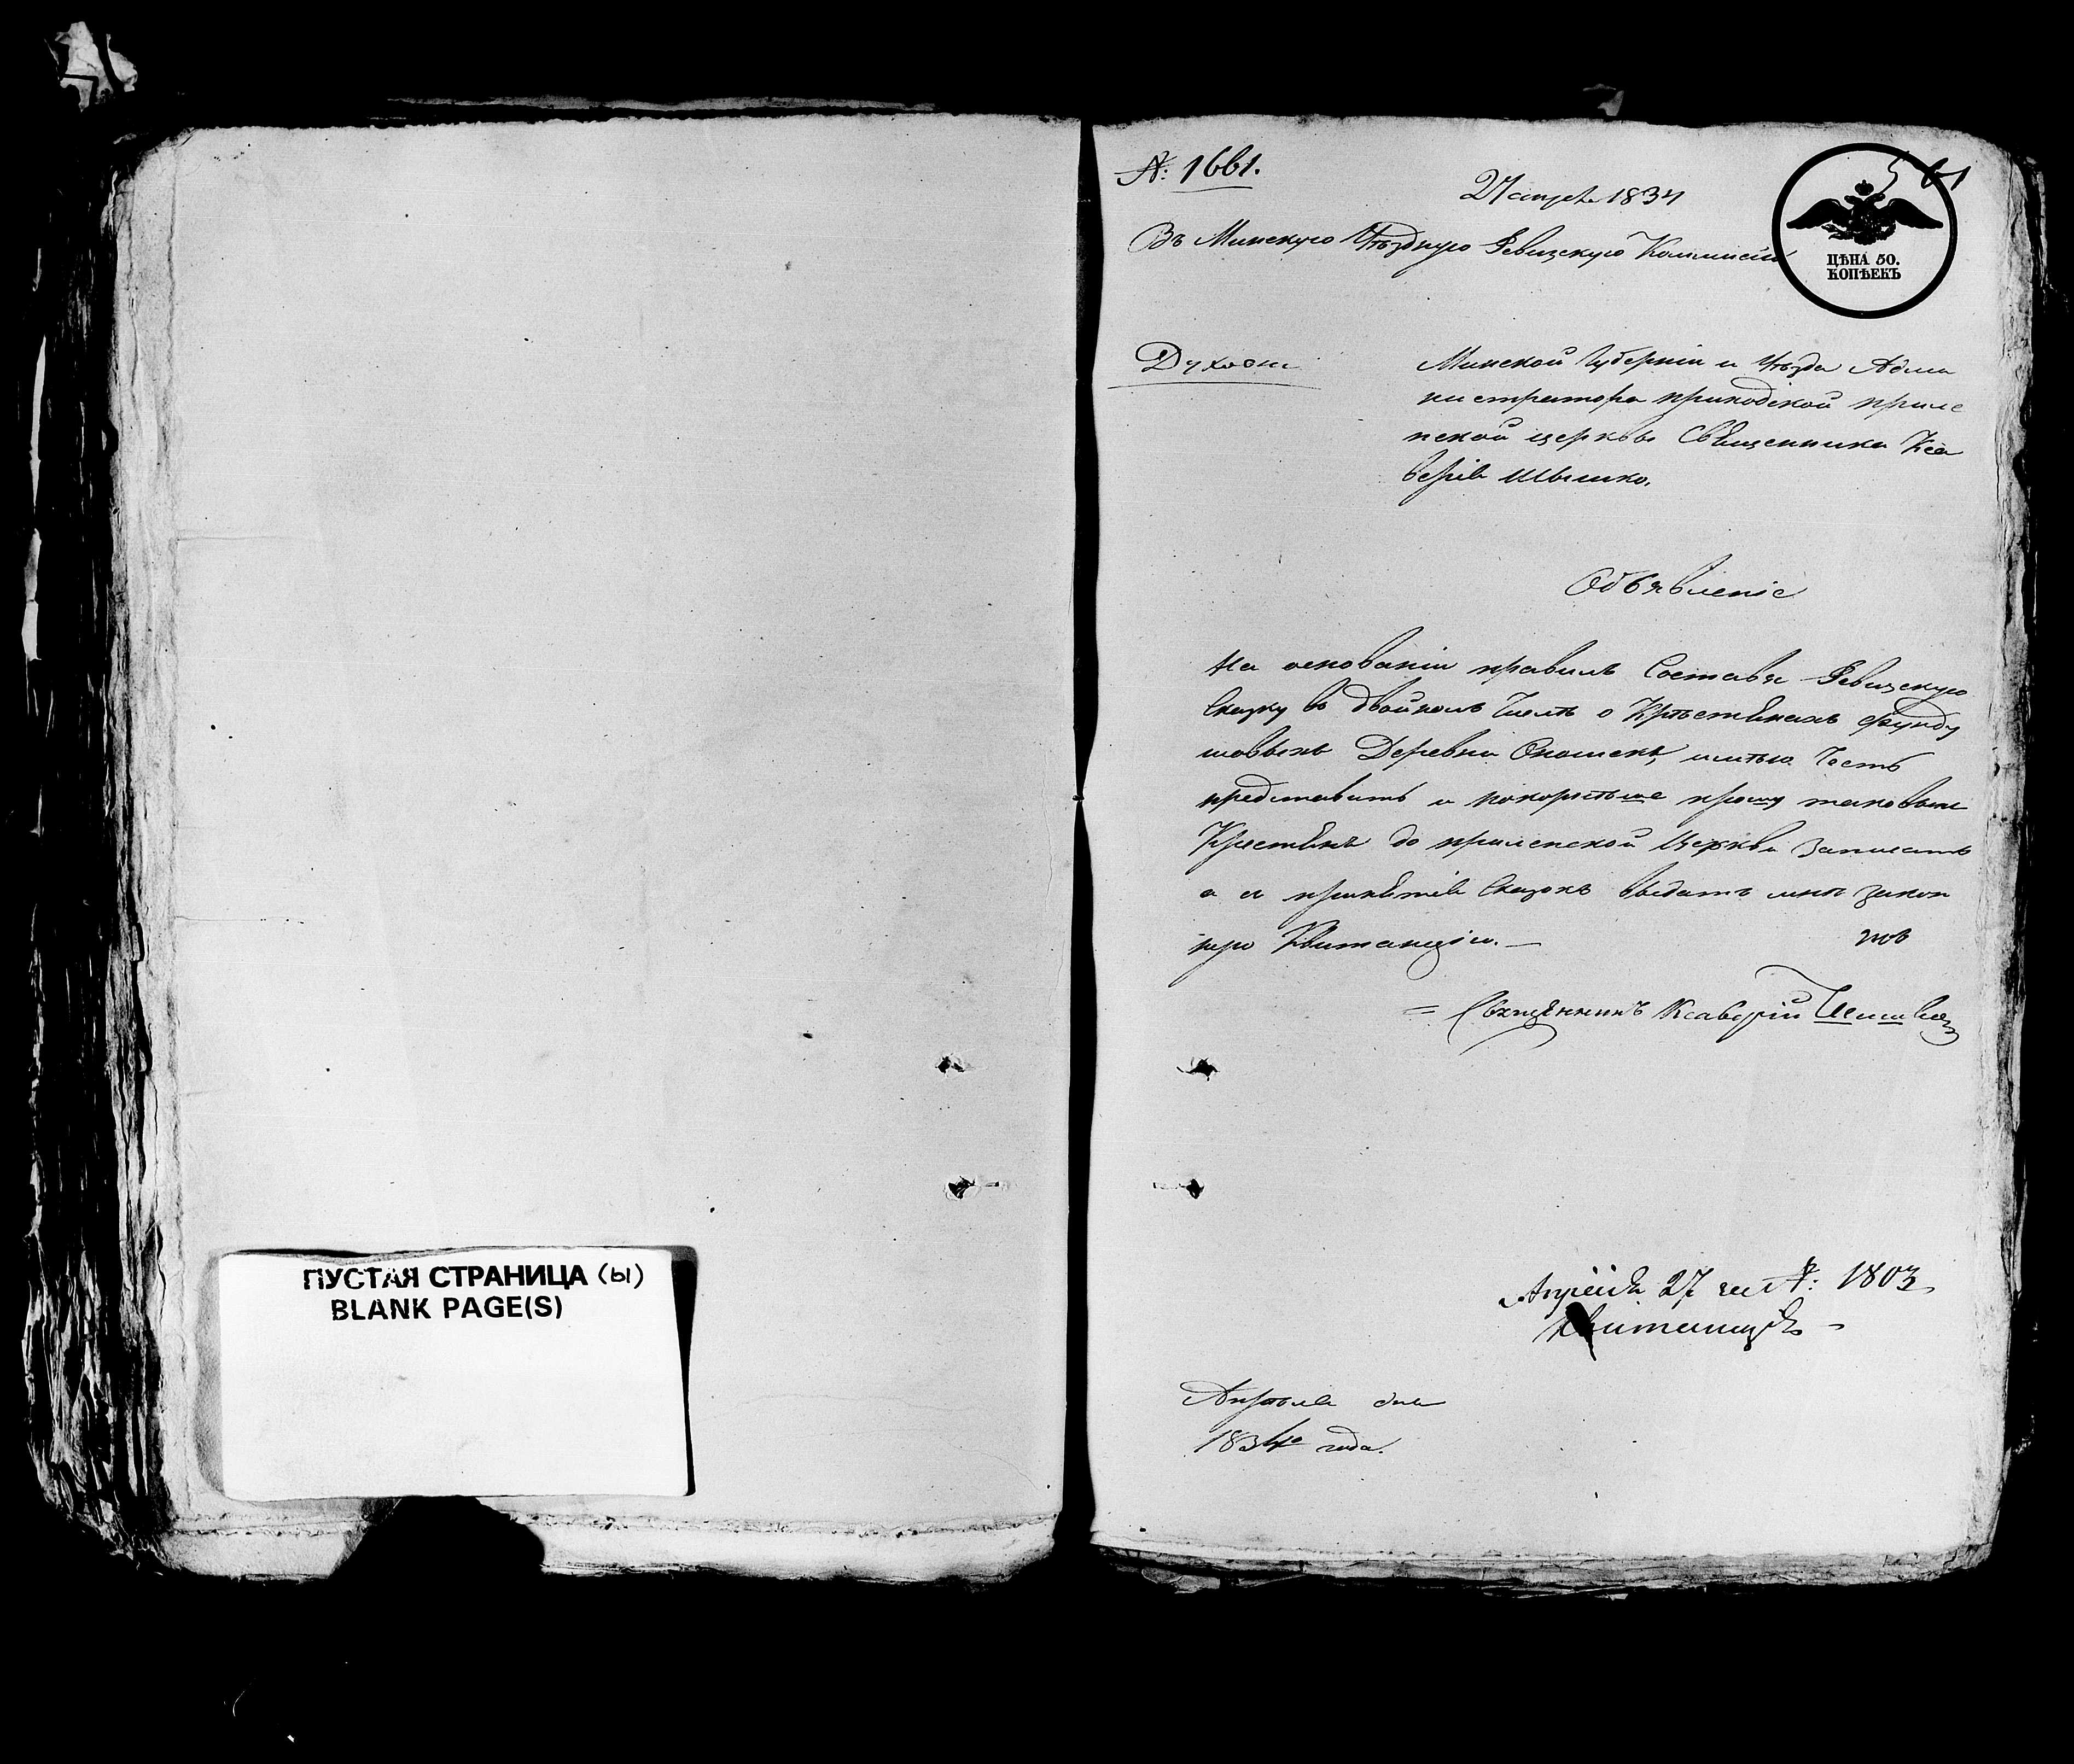 ПУСТАЯ СТРАНИЦА (ы)
BLANK PAGE(S)
№: 1661.
27 апреля 1834
561
ЦѢНА 50.
КОПѢЕКЪ
Въ Минскую Уѣздную Ревизскую Коммисію
Духовн
Минской Губерніи и Уѣзда Адми
нистратора приходской приле
пской церкви Священника Кса
верія
Объявленіе
На основаніи правилъ Составя Ревизскую
Сказку въ двойномъ Числѣ о Крѣстьянахъ фунду
шовыхъ Деревни имѣю Честь
представить и покорнѣйше прошу таковыхъ
Крестьянъ до прилепской Церкви Записать
а в принятіи Сказокъ выдать мнѣ закон
ную Квитанцію. —
Священникъ Ксаверій
Апреля 27 за №: 1803
Квитанція —
Апрѣля дня
1834го года.